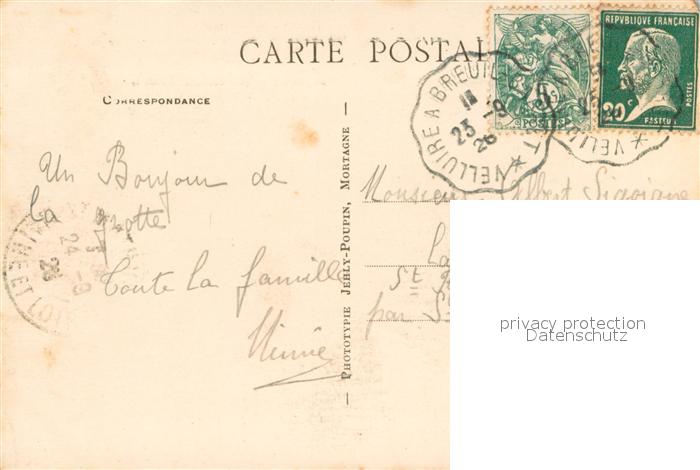 CARTE POSTAL
CORRESPONDANCE
Un Bonjour de
la grotte
Toute la famille
PHOTOTYPIE JEHLY-POUPIN, MORTAGNE
Monsieur Albert
La
St
par S
REPUBLIQUE FRANÇAISE
20c
POSTES
PASTEUR
5
POSTES
VELLUIRE A BREUIL
23 -9
26
VELLUI
24 -9
26
privacy protection
Datenschutz